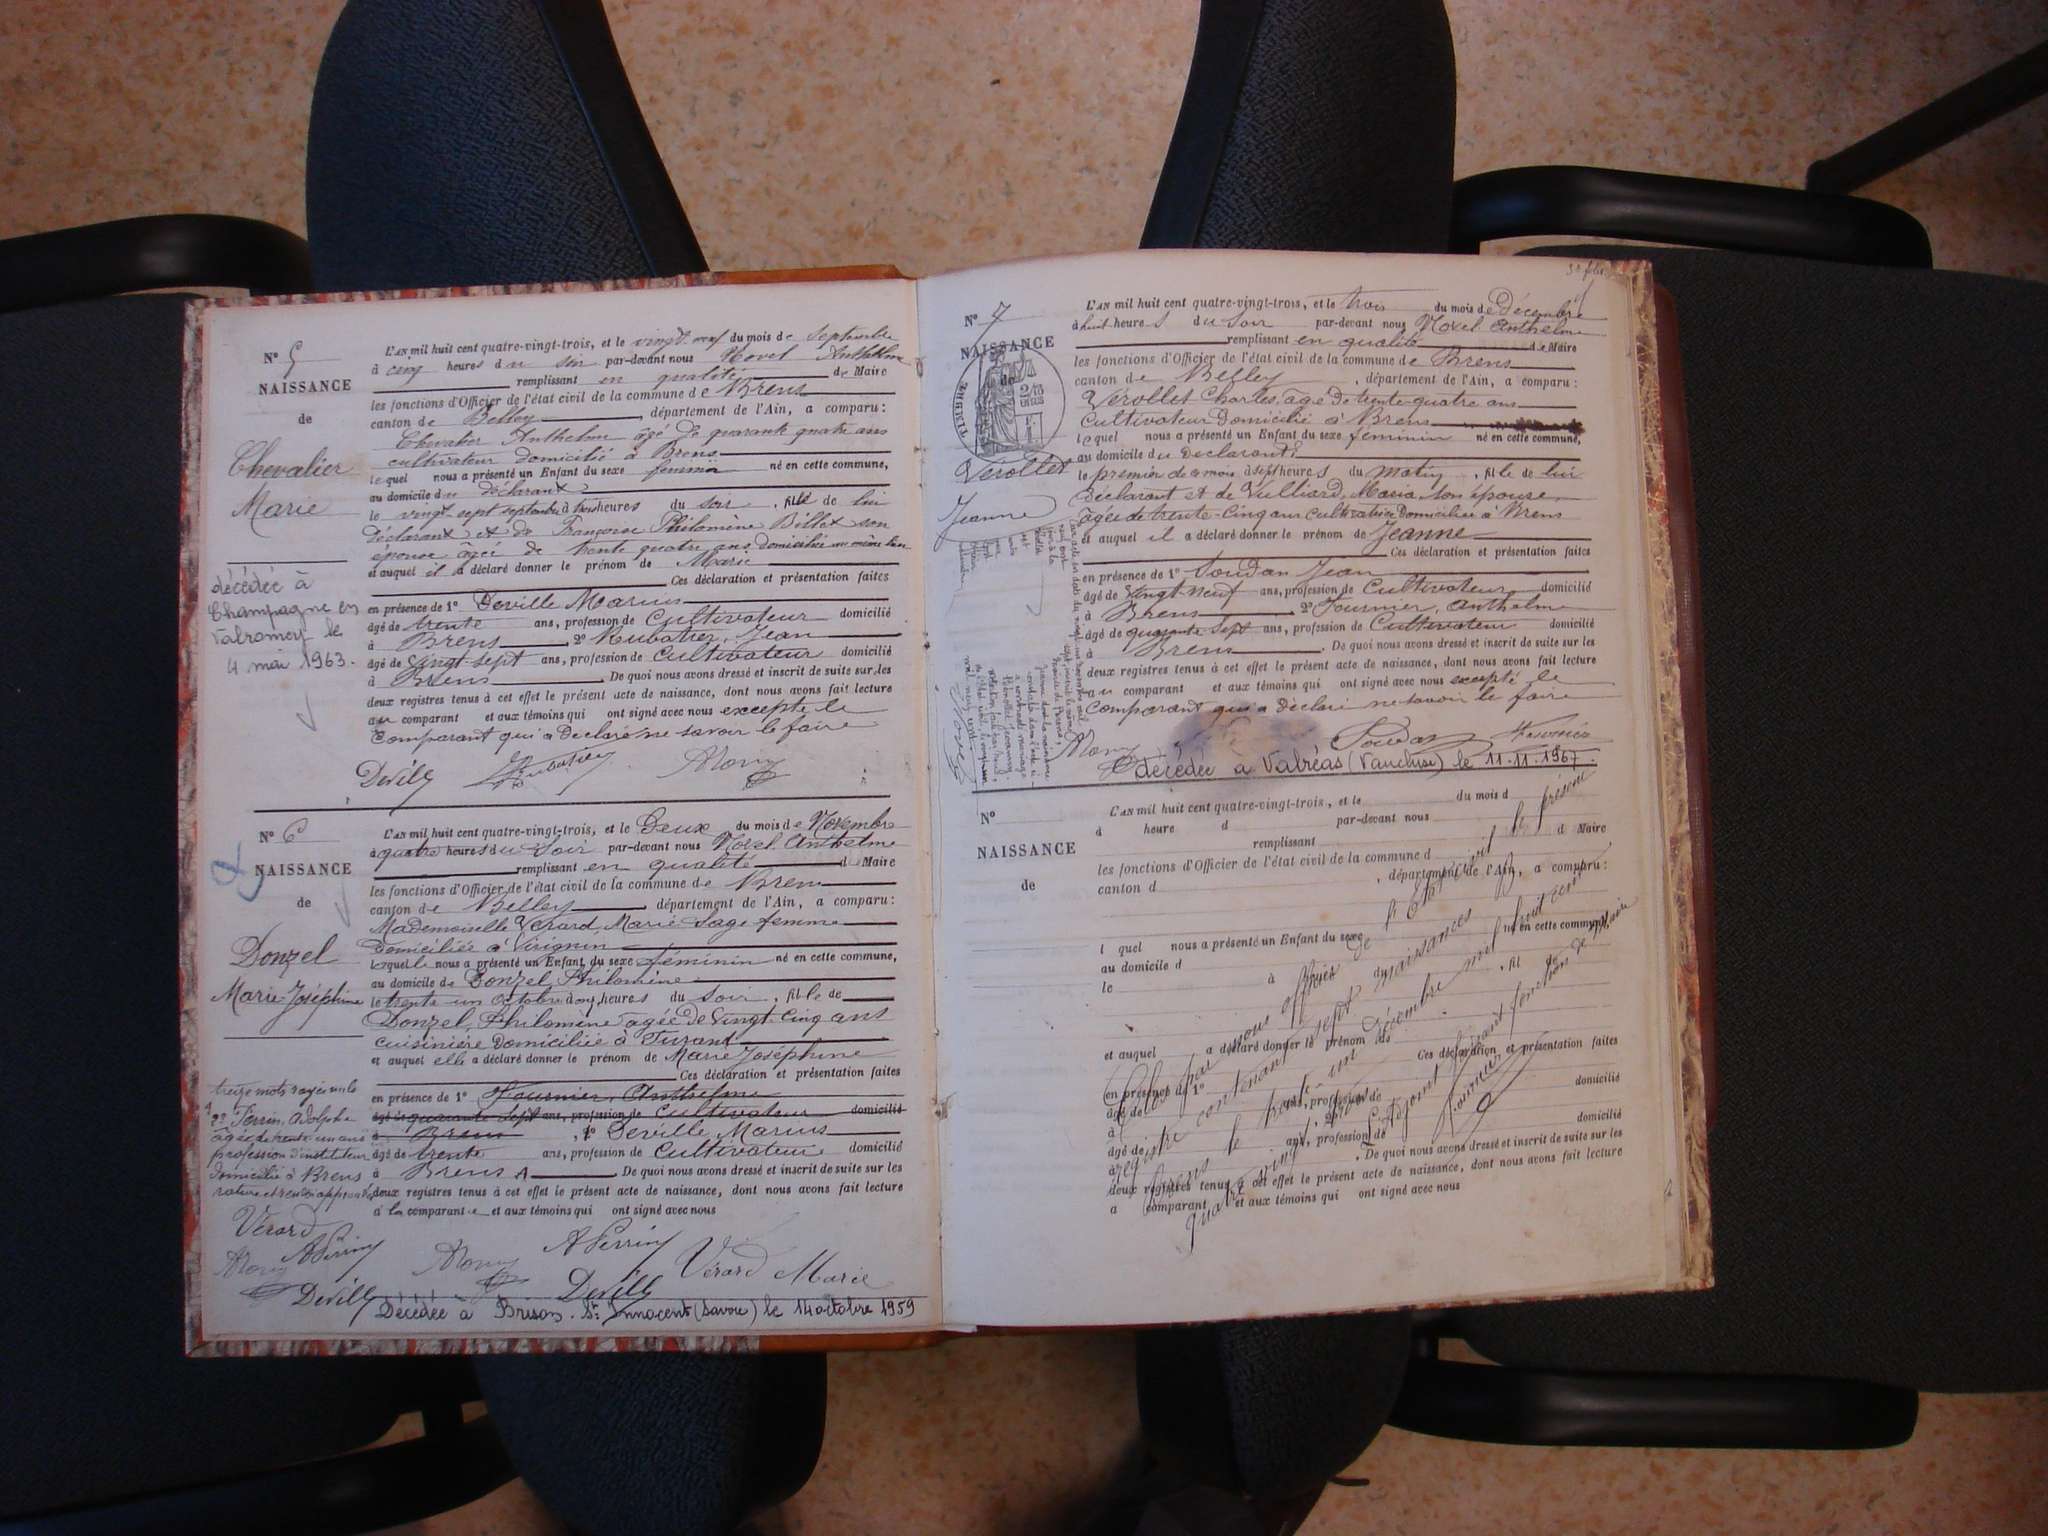 N° 5
NAISSANCE
de
Chevalier
Marie
décédée à
Champagne en
Valromey le
4 mai 1963.
L'AN mil huit cent quatre-vingt-trois, et le vingt neuf du mois de Septembre
à cinq heures du soir par-devant nous Morel Anthelme
remplissant en qualité de Maire
les fonctions d'Officier de l'état civil de la commune de Brens
canton de Belley, département de l'Ain, a comparu:
Chevalier Anthelme âgé de quarante quatre ans
cultivateur domicilié à Brens
lequel nous a présenté un Enfant du sexe féminin né en cette commune,
au domicile du déclarant
le vingt sept septembre à heures du soir, fille de lui
déclarant et de Françoise Philomène Billet son
épouse âgée de trente quatre ans domiciliée au même lieu
et auquel il a déclaré donner le prénom de Marie
Ces déclaration et présentation faites
en présence de 1° Deville Marius
âgé de trente ans, profession de Cultivateur domicilié
à Brens, 2° Rubatier, Jean
âgé de vingt-sept ans, profession de Cultivateur domicilié
à Brens. De quoi nous avons dressé et inscrit de suite sur les
deux registres tenus à cet effet le présent acte de naissance, dont nous avons fait lecture
au comparant et aux témoins qui ont signé avec nous excepté le
Comparant qui a déclaré ne savoir le faire
Deville Rubatier
N° 6
NAISSANCE
de
Donzel
Marie Joséphine
treize mots rayés nuls
2° Perrin, Adolphe
âgé de trente un ans
profession d'instituteur
domicilié à Brens
Vérard
APerrin
Deville
L'AN mil huit cent quatre-vingt-trois, et le Deux du mois de Novembre
à quatre heures du Soir par-devant nous Morel Anthelme
remplissant en qualité de Maire
les fonctions d'Officier de l'état civil de la commune de Brens
canton de Belley, département de l'Ain, a comparu:
Mademoiselle Verard, Marie Sage femme
Domiciliée à Virignin
laquelle nous a présenté un Enfant du sexe féminin né en cette commune,
au domicile de Donzel, Philomène
le trente un Octobre à onze heures du Soir, fille de
Donzel, Philomène âgée de vingt-cinq ans
cuisinière Domiciliée à
et auquel elle a déclaré donner le prénom de Marie Joséphine
Ces déclaration et présentation faites
en présence de 1° Fournier Anthelme
âgé de quarante sept ans, profession de Cultivateur domicilié
à Brens, 1° Deville, Marius
âgé de trente ans, profession de Cultivateur domicilié
à Brens. De quoi nous avons dressé et inscrit de suite sur les
deux registres tenus à cet effet le présent acte de naissance, dont nous avons fait lecture
à la comparante et aux témoins qui ont signé avec nous
APerrin
Deville Vérard Marie
Décédée à Brison-St-Innocent (Savoie) le 14 octobre 1959
N° 7
NAISSANCE
de
TIMBRE
Vérollet
Jeanne
L'AN mil huit cent quatre-vingt-trois, et le trois du mois de Décembre
à huit heures du Soir par-devant nous Morel Anthelme
remplissant en qualité de Maire
les fonctions d'Officier de l'état civil de la commune de Brens
canton de Belley, département de l'Ain, a comparu:
Vérollet Charles, âgé de trente-quatre ans
Cultivateur Domicilié à Brens
lequel nous a présenté un Enfant du sexe féminin né en cette commune,
au domicile du Déclarant
le premier de ce mois à sept heures du matin, fille de lui
Déclarant et de Vulliard, Maria son épouse,
âgée de trente-cinq ans Cultivatrice Domiciliée à Brens
et auquel il a déclaré donner le prénom de Jeanne
Ces déclaration et présentation faites
en présence de 1° Soudan Jean
âgé de Vingt-neuf ans, profession de Cultivateur domicilié
à Brens, 2° Fournier, Anthelme
âgé de quarante sept ans, profession de Cultivateur domicilié
à Brens. De quoi nous avons dressé et inscrit de suite sur les
deux registres tenus à cet effet le présent acte de naissance, dont nous avons fait lecture
au comparant et aux témoins qui ont signé avec nous excepté le
Comparant qui a déclaré ne savoir le faire
Soudan Fournier
décédée à Valréas (Vaucluse) le 11.11.1967
N°
NAISSANCE
de
L'AN mil huit cent quatre-vingt-trois, et le du mois d
à heure d par-devant nous
remplissant d Maire
les fonctions d'Officier de l'état civil de la commune d
canton d, département de l'Ain, a comparu:
l quel nous a présenté un Enfant du sexe né en cette commune,
au domicile d
le à du, fil de
et auquel a déclaré donner le prénom de
Ces déclaration et présentation faites
en présence de 1°
âgé de ans, profession de domicilié
à
âgé de ans, profession de domicilié
à. De quoi nous avons dressé et inscrit de suite sur les
deux registres tenus à cet effet le présent acte de naissance, dont nous avons fait lecture
a comparant et aux témoins qui ont signé avec nous
Clos par nous officier de l'état civil le présent
registre contenant sept naissances
Brens le trente-un décembre mil huit cent
quatre vingt trois
L'adjoint faisant fonction de Maire
Fournier